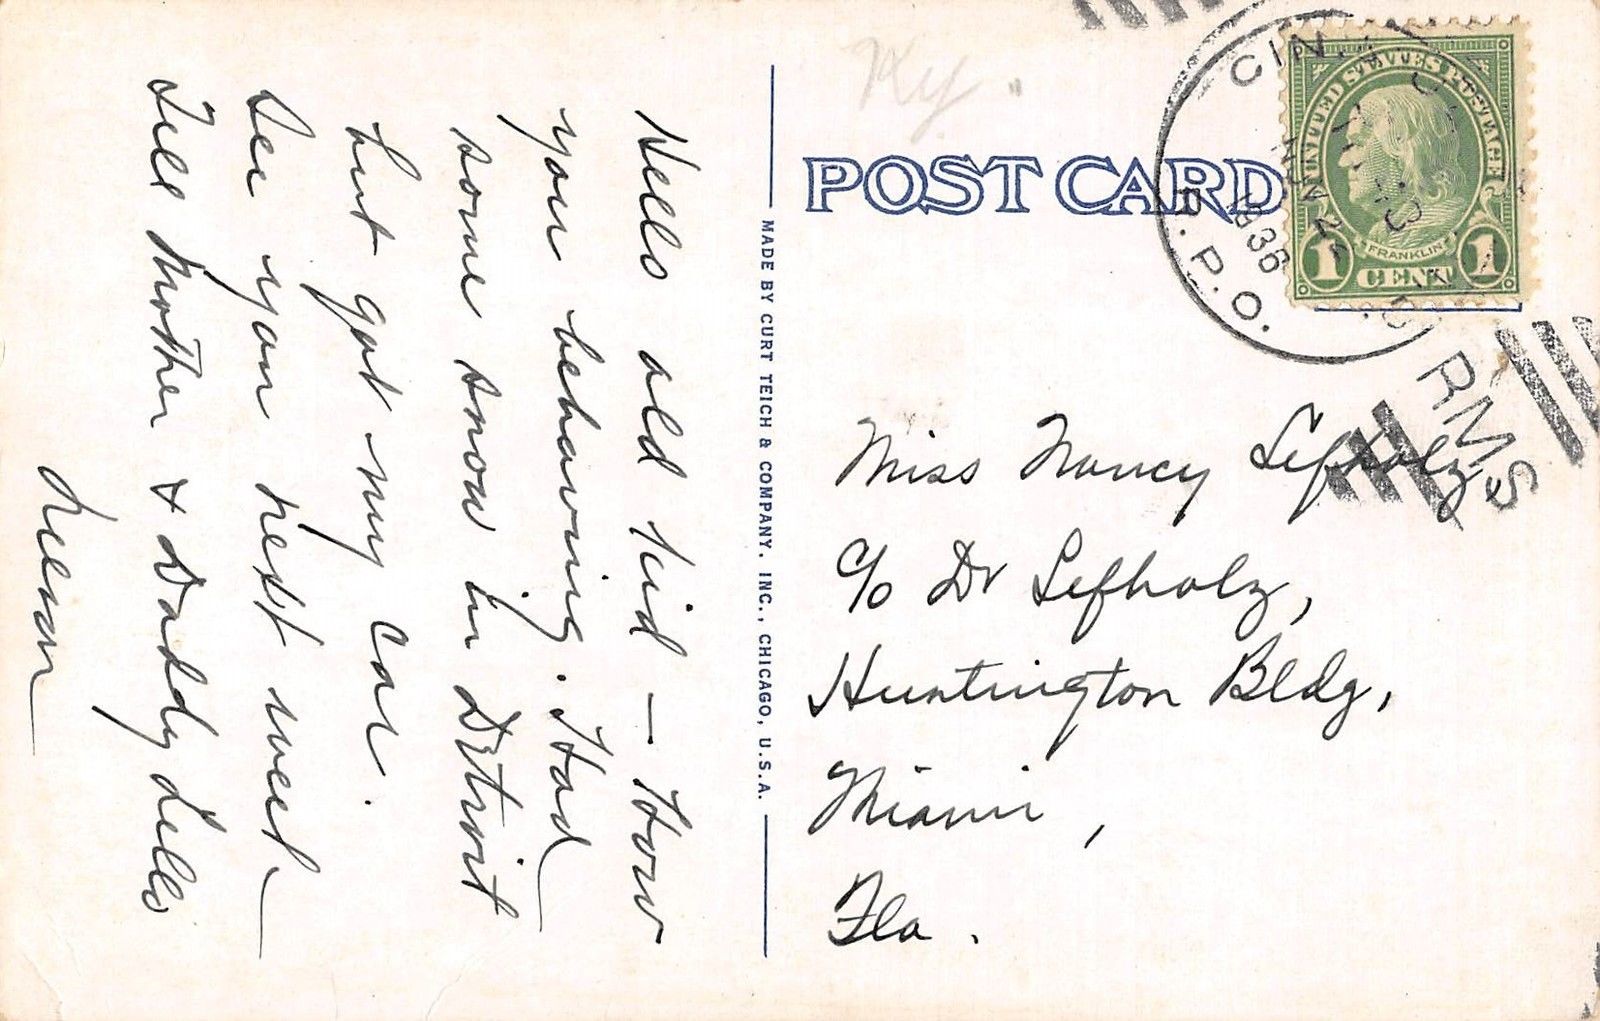 Ky.
POST CARD
CIN. &
R.P.O.
1936
RMS
UNITED STATES POSTAGE
FRANKLIN
1 CENT 1
Hello old kid — How
you behaving. Had
some snow in Detroit
but got my car.
See you next week
Tell Mother & Daddy hello
MADE BY CURT TEICH & COMPANY, INC., CHICAGO, U.S.A.
Miss Nancy Lefholz
c/o Dr Lefholz,
Huntington Bldg,
Miami,
Fla.